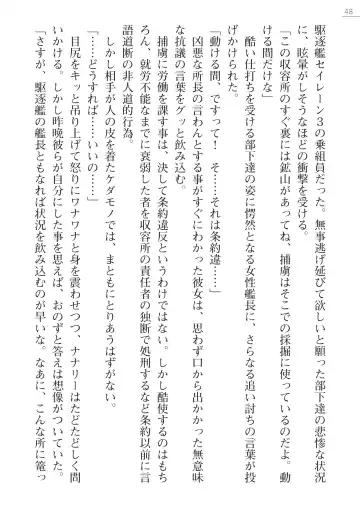 48
駆逐艦セイレーン３の乗組員だった。無事逃げ延びて欲しいと願った部下達の悲惨な状況
に、眩暈がしそうなほどの衝撃を受ける。
「この収容所のすぐ裏には鉱山があってね、捕虜はそこでの採掘に使っているのだよ。動
ける間だけな」
酷い仕打ちを受ける部下達の姿に愕然となる女性艦長に、さらなる追い討ちの言葉が投
げかけられた。
「動ける間、ですって！　そ……それは条約違……」
凶悪な所長の言わんとする事がすぐにわかった彼女は、思わず口から出かかった無意味
な抗議の言葉をグッと飲み込む。
捕虜に労働を課す事は、決して条約違反というわけではない。しかし酷使するのはもち
ろん、就労不能なまでに衰弱した者を収容所の責任者の独断で処刑するなど条約以前に言
語道断の非人道的行為。
しかし相手が人の皮を着たケダモノでは、まともにとりあうはずがない。
「……どうすれば……いいの……」
目尻をキッと吊り上げて怒りにワナワナと身を震わせつつ、ナナリーはたどたどしく問
いかける。しかし昨晩彼らが自分にした事を思えば、おのずと答えは想像がつていた。
「さすが、駆逐艦の艦長ともなれば状況を飲み込むのが早いな。なあに、こんな所に篭っ